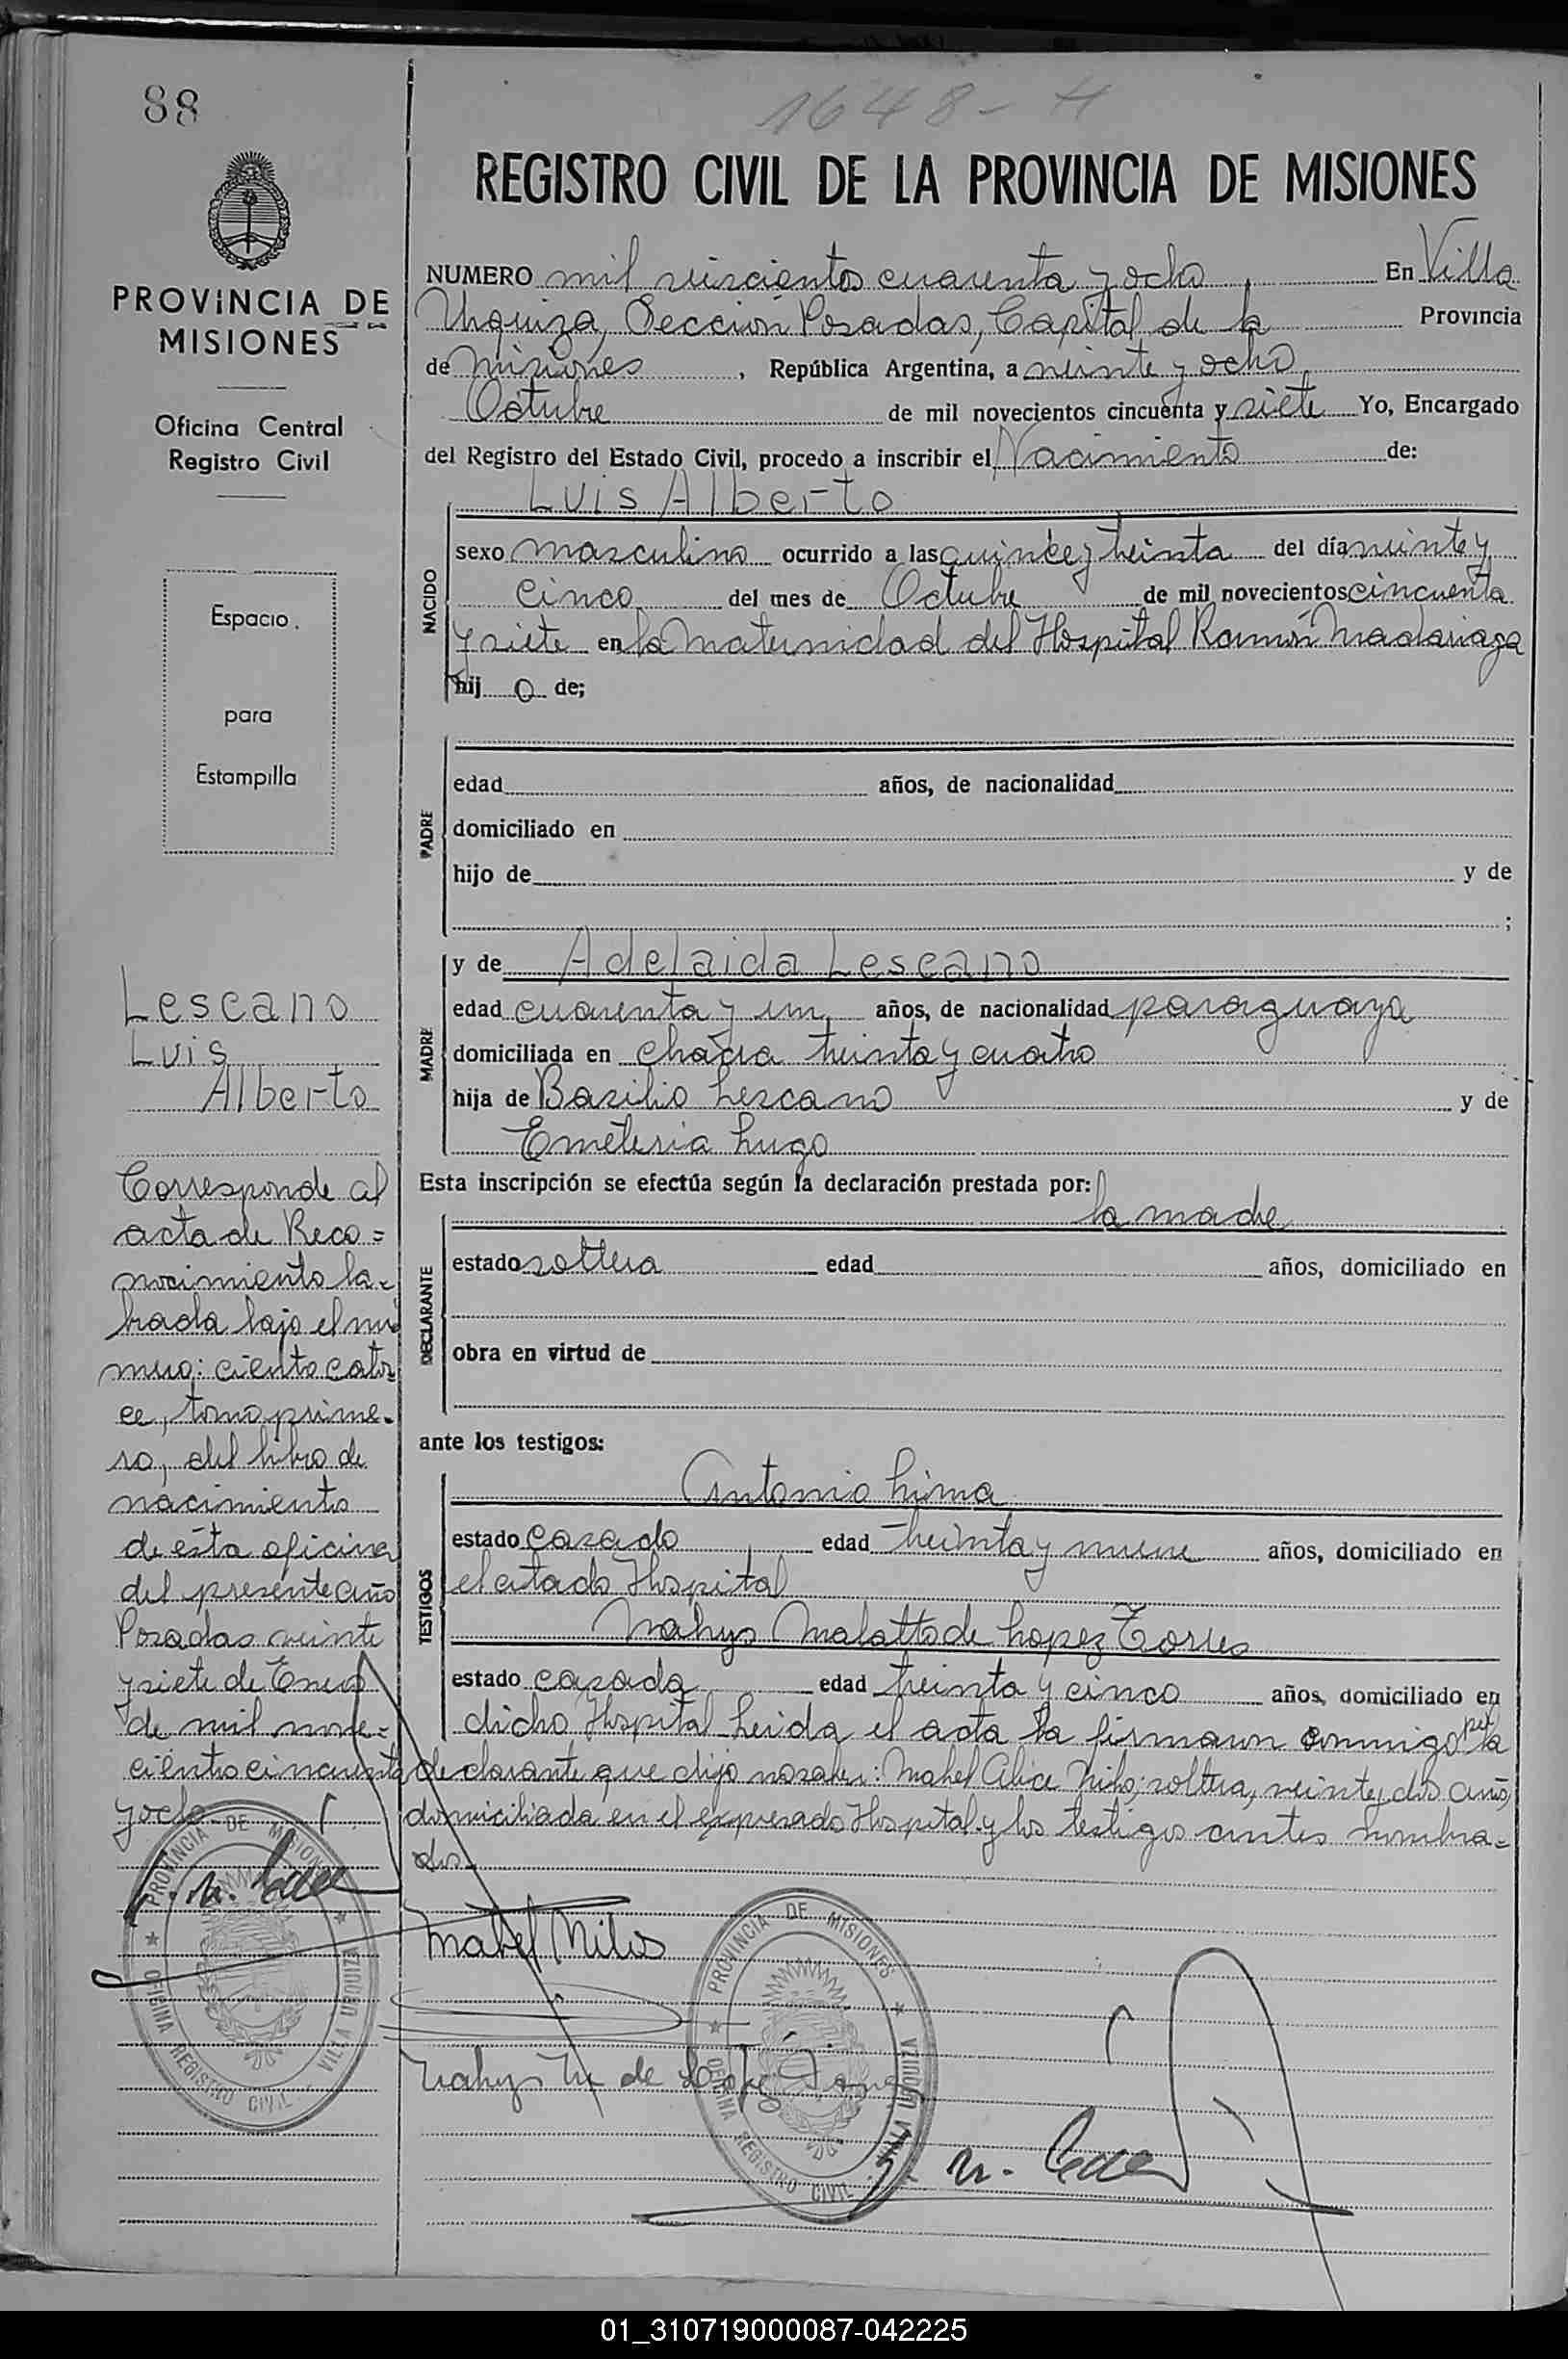 88
1648-H
REGISTRO CIVIL DE LA PROVINCIA DE MISIONES
PROVINCIA DE
MISIONES
Oficina Central
Registro Civil
Espacio
para
Estampilla
NUMERO mil seiscientos cuarenta y ocho, En Villa
Urquiza, Sección Posadas, Capital de la Provincia
de Misiones, República Argentina, a veinte y ocho
Octubre de mil novecientos cincuenta y siete Yo, Encargado
del Registro del Estado Civil, procedo a inscribir el Nacimiento de:
Luis Alberto
NACIDO
sexo masculino ocurrido a las quince y treinta del día veinte y
cinco del mes de Octubre de mil novecientos cincuenta
y siete en la Maternidad del Hospital Ramón Madariaga
hij o de;
PADRE
edad años, de nacionalidad
domiciliado en
hijo de y de
;
MADRE
y de Adelaida Lescano
edad cuarenta y un años, de nacionalidad paraguaya
domiciliada en chacra treinta y cuatro
hija de Basilio Lescano y de
Emeteria Lugo
Esta inscripción se efectúa según la declaración prestada por:
la madre
DECLARANTE
estado soltera edad años, domiciliado en
obra en virtud de
ante los testigos:
TESTIGOS
Antonio Lima
estado casado edad treinta y nueve años, domiciliado en
el citado Hospital
Nahys Malatto de Lopez Torres
estado casada edad treinta y cinco años, domiciliado en
dicho Hospital Leida el acta la firmaron conmigo por la
declarante que dijo no saber: Mabel Alice Milos, soltera, veinte y dos años,
domiciliada en el expresado Hospital y los testigos antes nombra=
dos.
Mabel Milos
Nahys M de López Torres
Lescano
Luis
Alberto
Corresponde al
acta de Reco=
nocimiento la=
brada bajo el nú
mero: ciento cator=
ce, tomo prime=
ro, del libro de
nacimiento
de ésta oficina
del presente año
Posadas veinte
y siete de Enero
de mil nove=
cientos cincuenta
y ocho
PROVINCIA DE MISIONES
OFICINA REGISTRO CIVIL VILLA URQUIZA
PROVINCIA DE MISIONES
OFICINA REGISTRO CIVIL VILLA URQUIZA
01_310719000087-042225